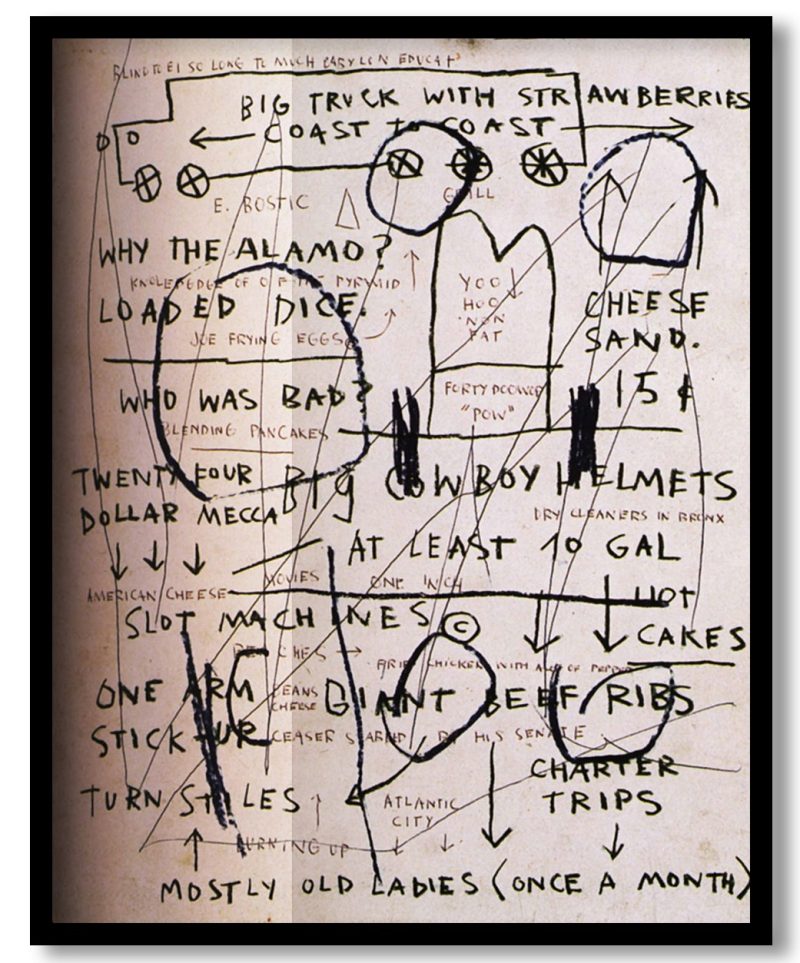 SO LONG TO MUCH BABYLON EDUCAT
BIG TRUCK WITH STRAWBERRIES
COAST TO COAST
E. BOSTIC
GRILL
WHY THE ALAMO?
KNOWLEDGE OF THE PYRAMID
LOADED DICE.
JOE FRYING EGGS
YOO
HOO
NON
FAT
CHEESE
SAND.
15¢
WHO WAS BAD?
FORTY
"POW"
BLENDING PANCAKES
TWENTY FOUR
DOLLAR MECCA
BIG COWBOY HELMETS
DRY CLEANERS IN BRONX
AT LEAST 10 GAL
MOVIES ONE INCH
AMERICAN CHEESE
HOT
CAKES
SLOT MACHINES ©
CHICKEN WITH
ONE ARM
STICK-UP
BEANS
CHEESE
GIANT BEEF RIBS
CEASER STARRED BY HIS SENATE
CHARTER
TRIPS
TURN STILES
ATLANTIC
CITY
BURNING UP
MOSTLY OLD LADIES (ONCE A MONTH)